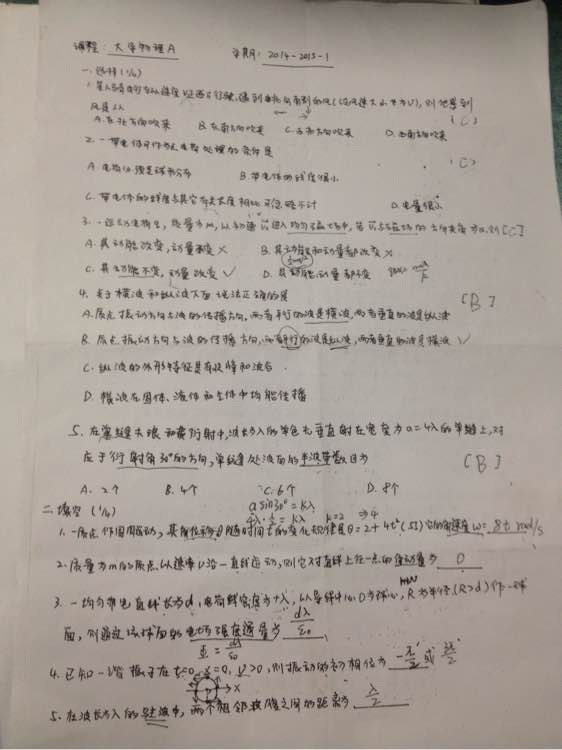 课程: 大学物理A 学期: 2014-2015-1
一.选择(1/6)
风是从 (C)
A.东北方向吹来 B.东南方向吹来 C.西北方向吹来 D.西南方向吹来
2.一带电体可作为点电荷处理的条件是 (C)
A.电荷必须是球形分布 B.带电体的线度很小
C.带电体的线度与其它有关长度相比可忽略不计 D.电量很小
3.一运动电荷q,质量为m,以初速 进入均匀磁场中,若 与磁场的方向夹角为α,则[C]
A.其动能改变,动量不变 × B.其动能和动量都改变 ×
C.其动能不变,动量改变 √ D.其动能、动量都不变
4.关于横波和纵波下面说法正确的是 [B]
A.质点振动方向与波的传播方向,两者平行的波是横波,两者垂直的波是纵波
B.质点振动方向与波的传播方向,两者平行的波是纵波,两者垂直的波是横波 √
C.纵波的外形特征是有波峰和波谷
D.横波在固体、液体和气体中均能传播
5.在单缝夫琅和费衍射中,波长为λ的单色光垂直射在宽度为a=4λ的单缝上,对
应于衍射角30°的方向,单缝处波面的半波带数目为 [B]
A. 2个 B. 4个 C. 6个 D. 8个
a sin30°=kλ
二.填空(1/6) 4λ·½=kλ k=2 ⇒4
1.一质点作圆周运动,其角位移θ随时间t的变化规律是θ=2+4t²(SI)它的角速度ω=8t rad/s
2.质量为m的质点以速率v沿一直线运动,则它对直线上任一点的角动量为 0
3.一均匀带电直线长为d,电荷线密度为+λ,以导线中心O为球心,R为半径(R>d)作一球
面,则通过该球面的电场强度通量为 dλ/ε₀
4.已知一谐振子在t=0,x=0,v>0,则振动的初相位为 -π/2 或 3π/2
x
5.在波长为λ的驻波中,两个相邻波腹之间的距离为 λ/2